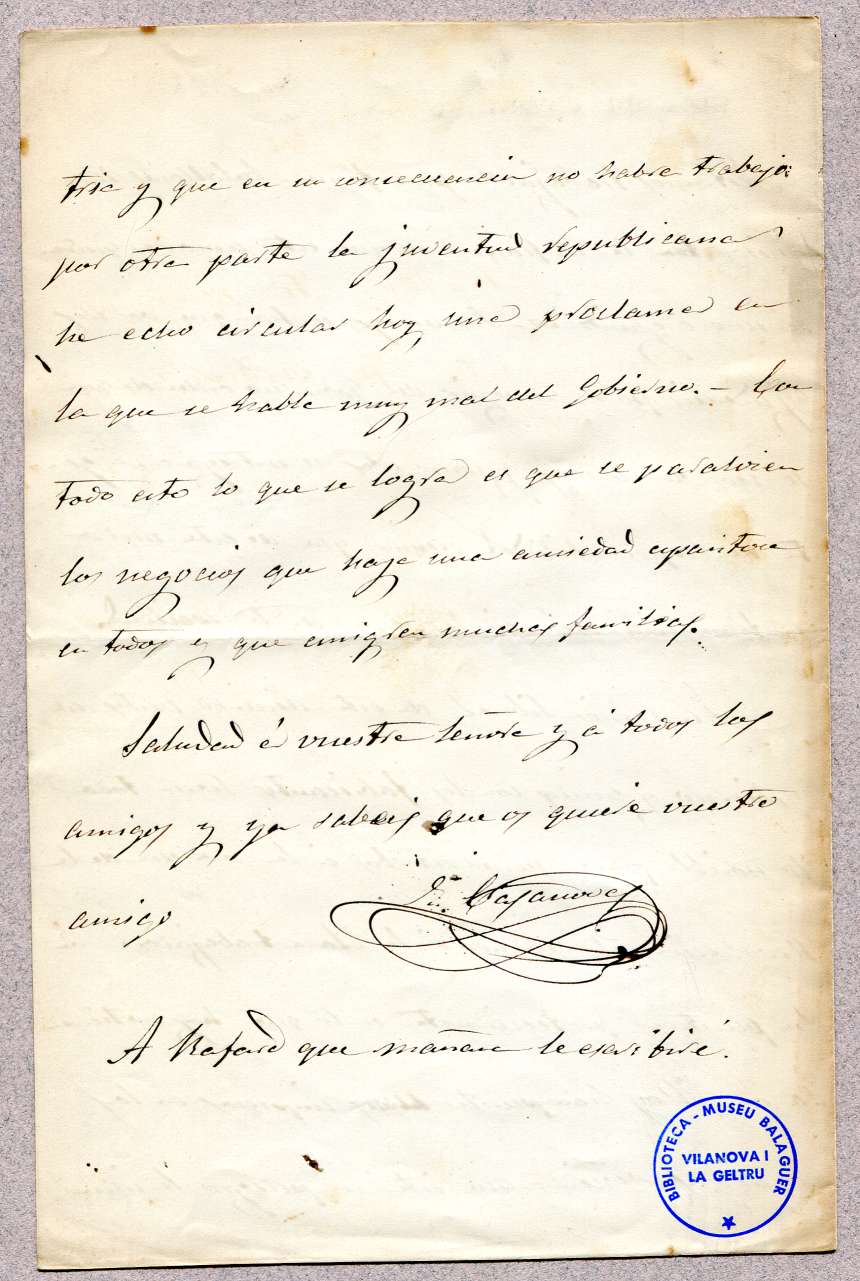 tria y que en su consecuencia no habra trabajo:
por otra parte la juventud republicana
ha echo circular hoy, una proclama en
la que se habla muy mal del Gobierno. - Con
todo esto lo que se logra es que se paralicen
los negocios que haya una ansiedad espantosa
en todos y que emigren muchas familias.
Saludad á vuestra Señora y á todos los
amigos y ya sabeis que os quiere vuestro
amigo
Casanovas
A Rafard que mañana le escribiré.
BIBLIOTECA - MUSEU BALAGUER
VILANOVA I
LA GELTRU